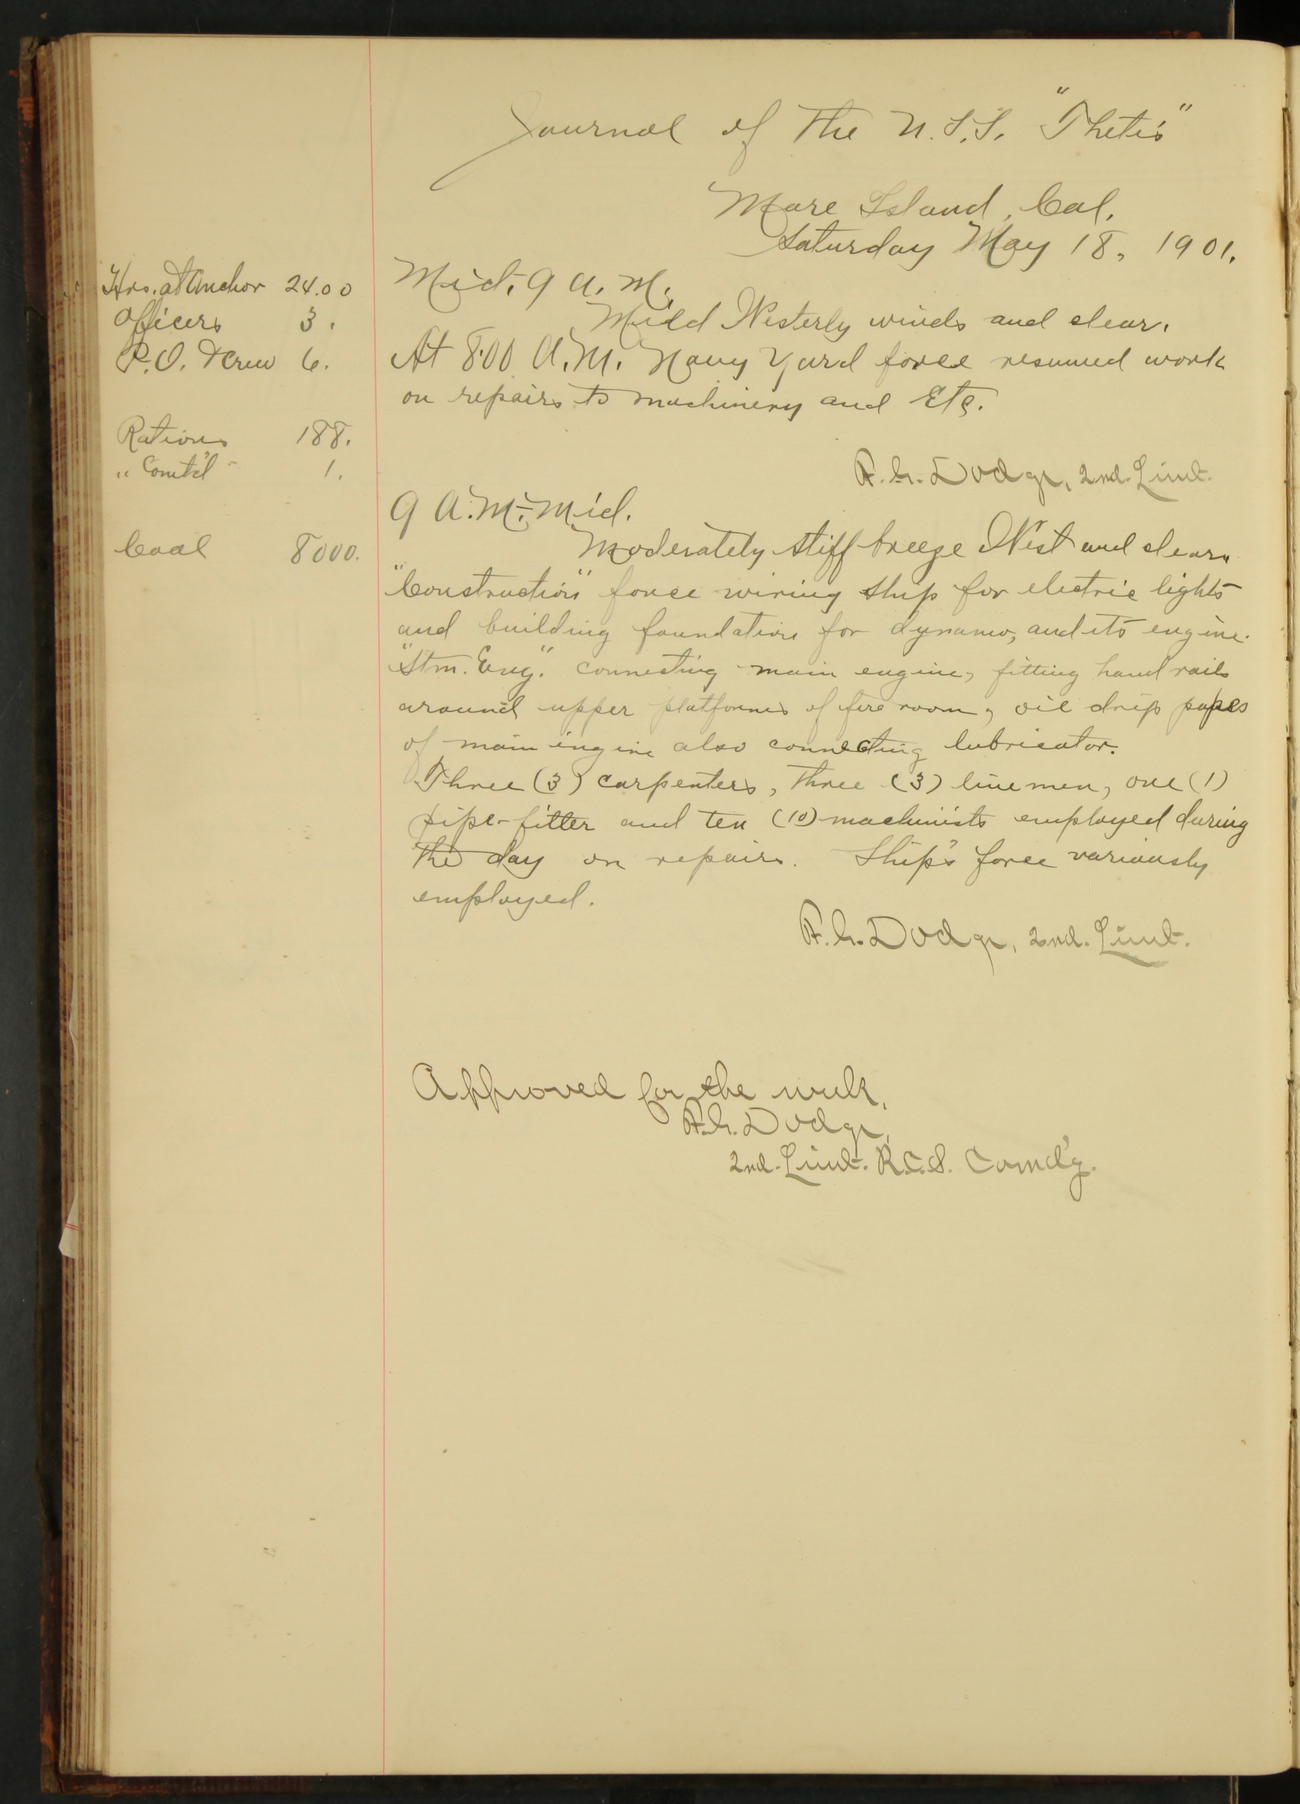 Journal of The U.S.S. "Thetis"
Mare Island, Cal.
Saturday May 18, 1901.
Hrs. at Anchor 24.00
Officers 3.
P.O. & Crew 6.
Rations 188.
" Comt'd " 1.
Coal 8000.
Mid. 9 A.M.
Mild Westerly winds and clear.
At 8.00 A.M. Navy Yard force resumed work
on repairs to machinery and Etc.
F.G. Dodge, 2nd. Lieut.
9 A.M.-Mid.
Moderately stiff breeze West and clear.
"Construction" force wiring ship for electric lights
and building foundation for dynamo, and its engine.
"Stm. Eng." connecting main engine, fitting hand rails
around upper platforms of fire room, oil drip pipes
of main engine also connecting lubricator.
Three (3) carpenters, three (3) linemen, one (1)
pipe-fitter and ten (10) machinists employed during
the day on repairs. Ship's force variously
employed.
F.G. Dodge, 2nd. Lieut.
Approved for the week.
F.G. Dodge,
2nd. Lieut. R.C.S. Comd'g.